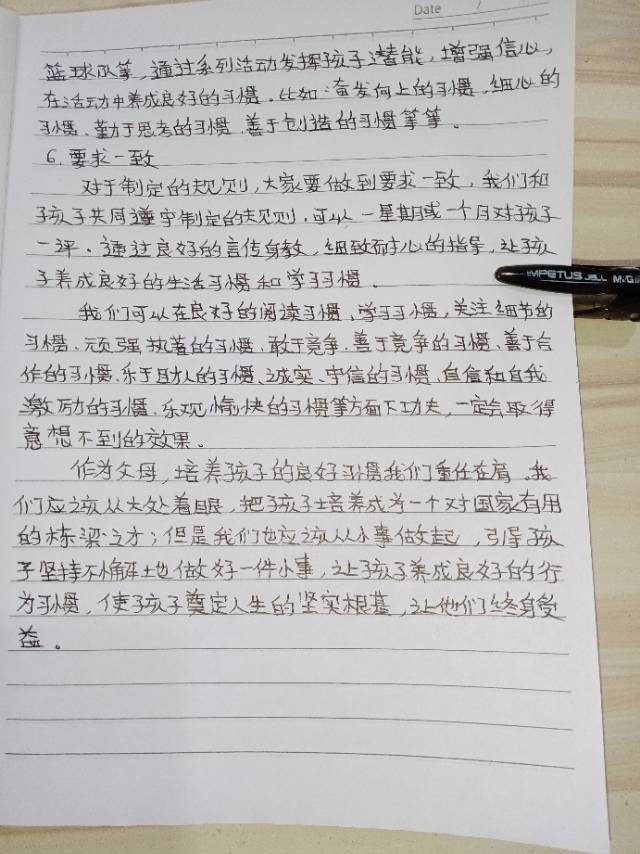 Date /
篮球队等,通过系列活动发挥孩子潜能,增强信心,
在活动中养成良好的习惯。比如:奋发向上的习惯、细心的
习惯、勤于思考的习惯、善于创造的习惯等等。
6.要求一致
对于制定的规则,大家要做到要求一致,我们和
孩子共同遵守制定的规则,可以一星期或一个月对孩子
一评。通过良好的言传身教,细致耐心的指导,让孩
子养成良好的生活习惯和学习习惯。
IMPETUS JELL M&G
我们可以在良好的阅读习惯,学习习惯,关注细节的
习惯、顽强执著的习惯、敢于竞争、善于竞争的习惯、善于合
作的习惯、乐于助人的习惯、诚实、守信的习惯、自信和自我
激励的习惯、乐观愉快的习惯等方面下功夫,一定会取得
意想不到的效果。
作为父母,培养孩子的良好习惯我们重任在肩。我
们应该从大处着眼,把孩子培养成为一个对国家有用
的栋梁之才;但是我们也应该从小事做起,引导孩
子坚持不懈地做好一件小事,让孩子养成良好的行
为习惯,使孩子奠定人生的坚实根基,让他们终身受
益。